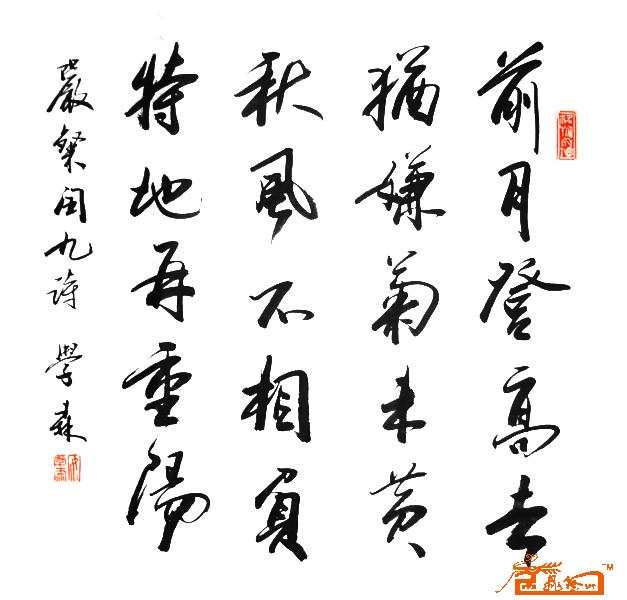 前月登高去
猶嫌菊未黄
秋風不相負
特地再重陽
嚴粲閏九詩 學森